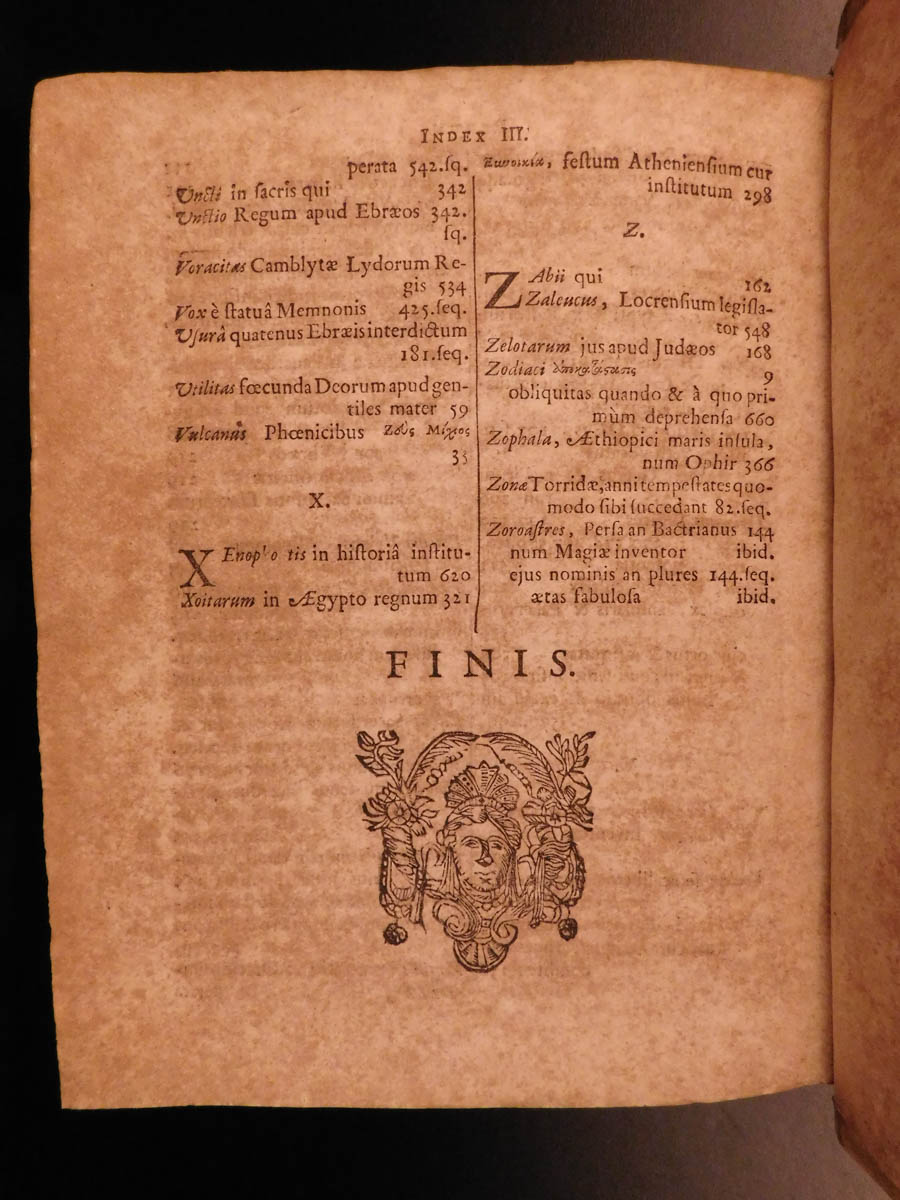 INDEX III.
perata 542.ſq.
Uncti in ſacris qui 342
Unctio Regum apud Ebræos 342.
ſq.
Voracitas Camblytæ Lydorum Re-
gis 534
Vox è ſtatuâ Memnonis 425.ſeq.
Uſurâ quatenus Ebræis interdictum
181.ſeq.
Utilitas fœcunda Deorum apud gen-
tiles mater 59
Vulcanus Phœnicibus Ζεὺς Μίχιος
33
X.
XEnopho tis in hiſtoriâ inſtitu-
tum 620
Xoitarum in Ægypto regnum 321
Ξυνοικία, feſtum Athenienſium cur
inſtitutum 298
Z.
ZAbii qui 162
Zaleucus, Locrenſium legiſla-
tor 548
Zelotarum jus apud Judæos 168
Zodiaci 9
obliquitas quando & à quo pri-
mùm deprehenſa 660
Zophala, Æthiopici maris inſula,
num Ophir 366
Zonæ Torridæ, anni tempeſtates quo-
modo ſibi ſuccedant 82.ſeq.
Zoroaſtres, Perſa an Bactrianus 144
num Magiæ inventor ibid.
ejus nominis an plures 144.ſeq.
ætas fabuloſa ibid.
FINIS.